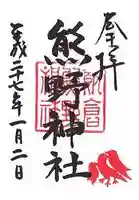 奉拝
熊野神社
平成二十七年一月二日